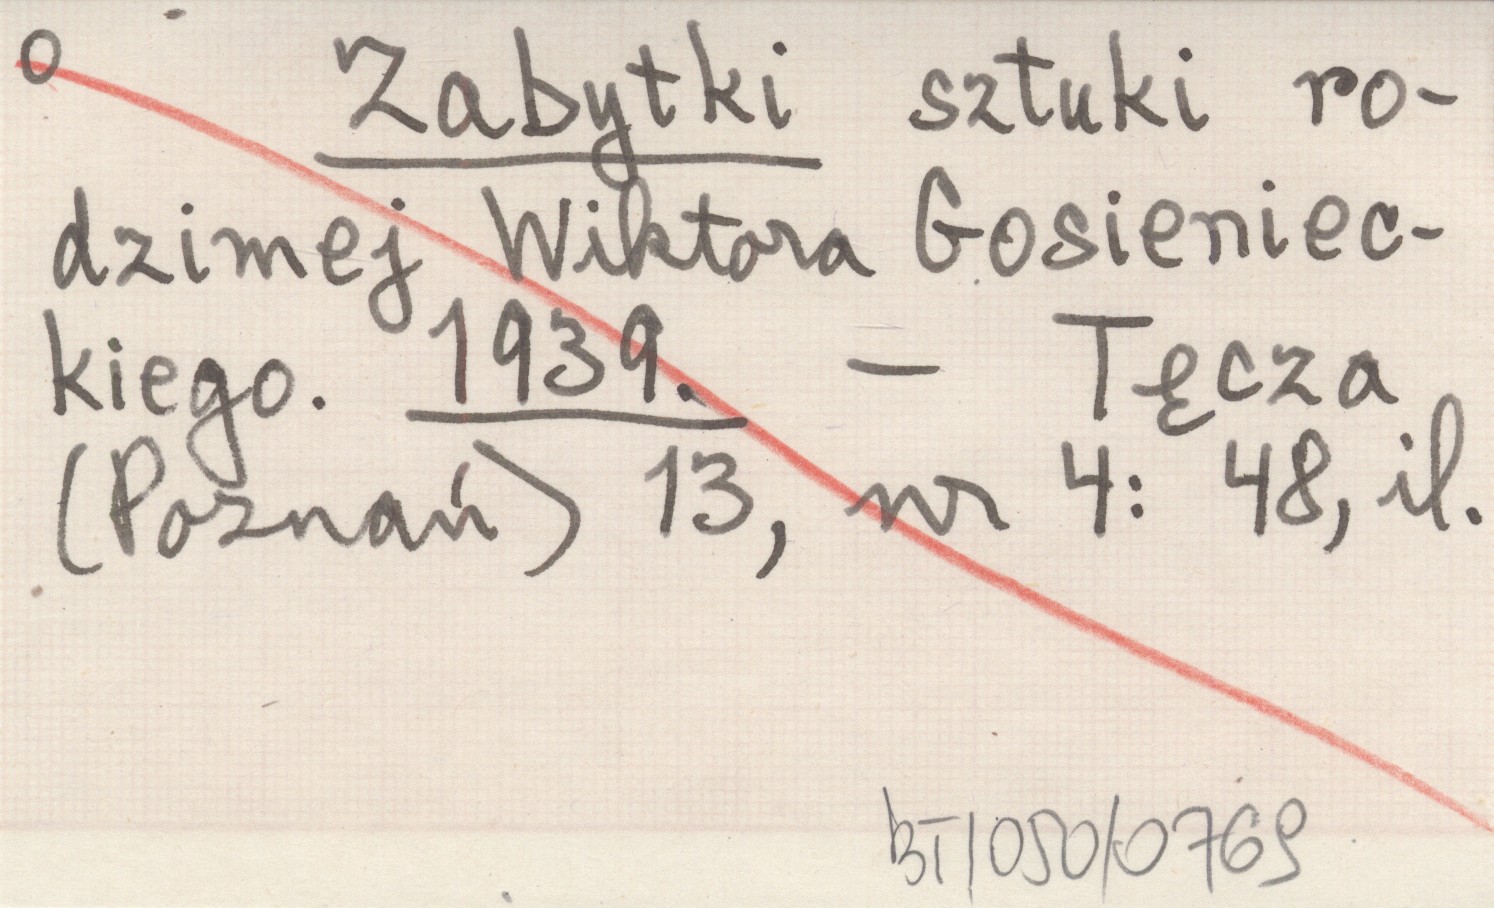 o Zabytki sztuki ro-
dzimej Wiktora Gosieniec-
kiego. 1939. – Tęcza
(Poznań) 13, nr 4: 48, il.
BT/050/0769